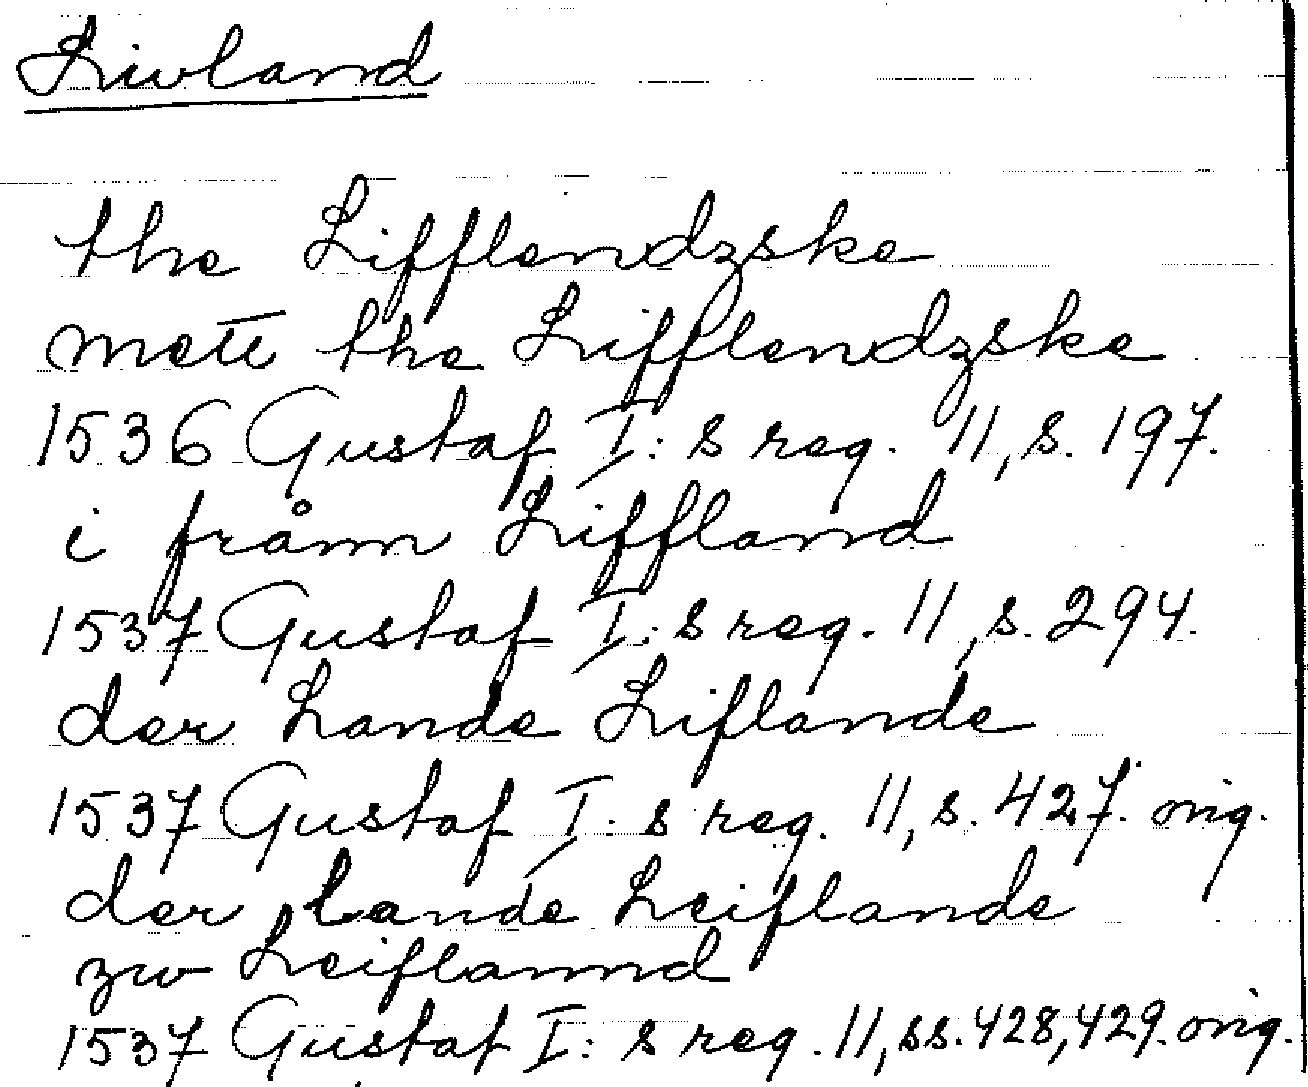 Livland
the Lifflendzske
mett the Lifflendzske
1536 Gustaf I:s reg. 11, s. 197.
i frånn Liffland
1537 Gustaf I:s reg. 11, s. 294.
der Lande Liflande
1537 Gustaf I:s reg. 11, s. 427. orig.
der Lande Leiflande
zw Leiflannd
1537 Gustaf I:s reg. 11, ss. 428, 429. orig.